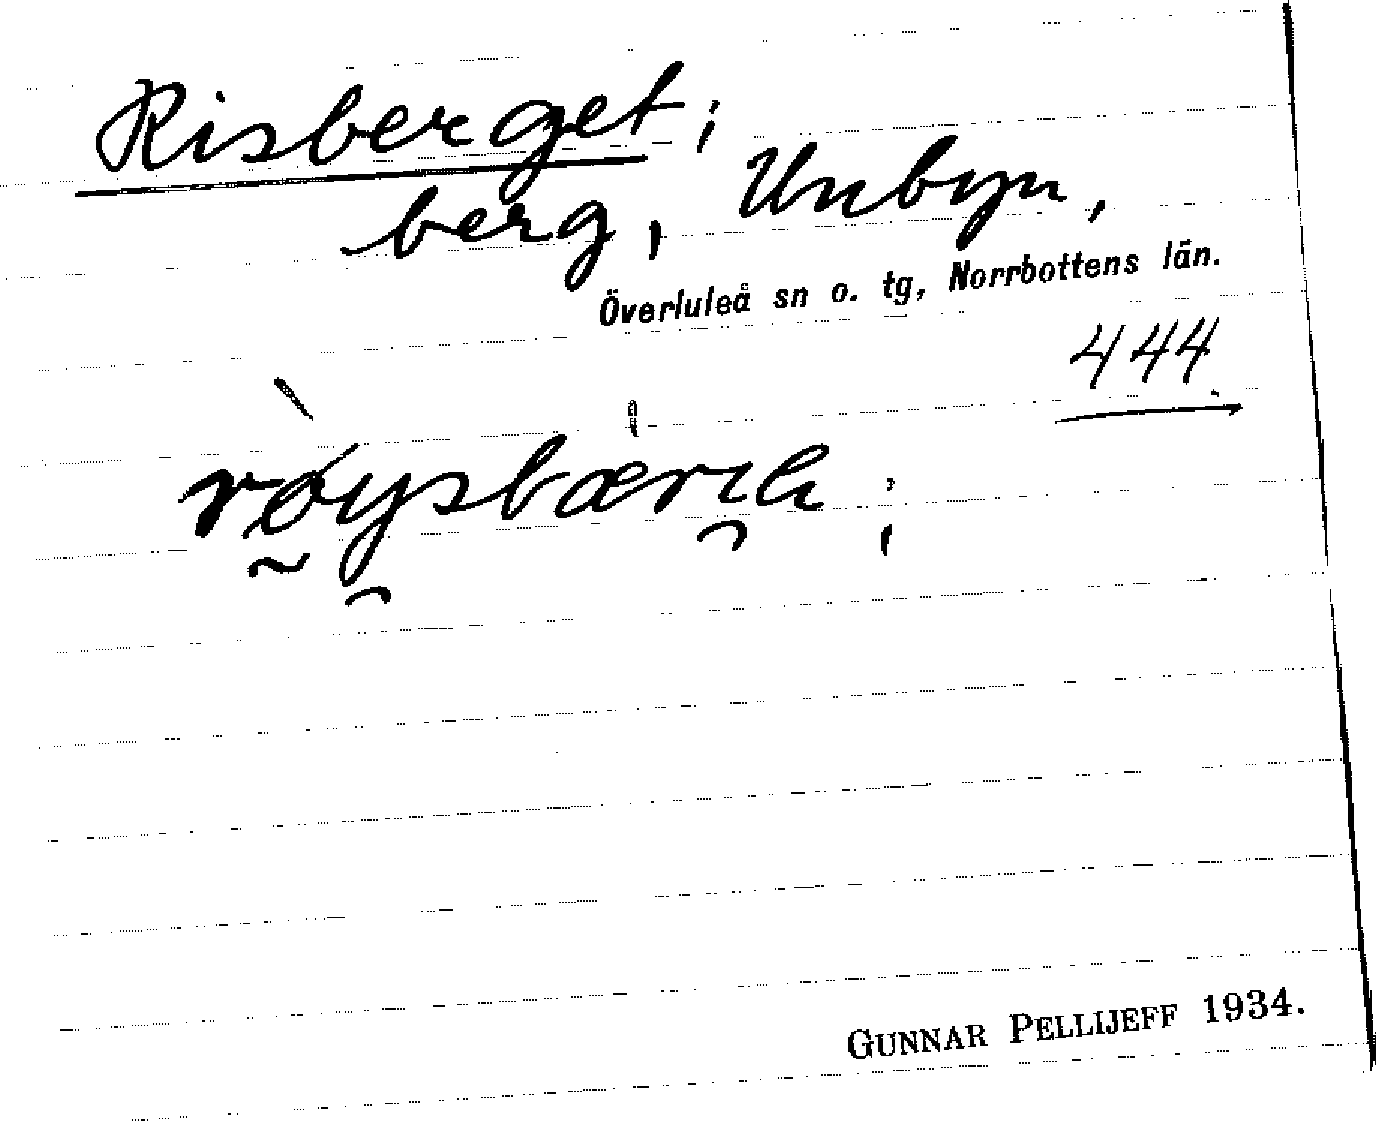 Risberget;
berg, Unbyn,
Överluleå sn o. tg, Norrbottens län.
444
røysbærıɕ;
GUNNAR PELLIJEFF 1934.